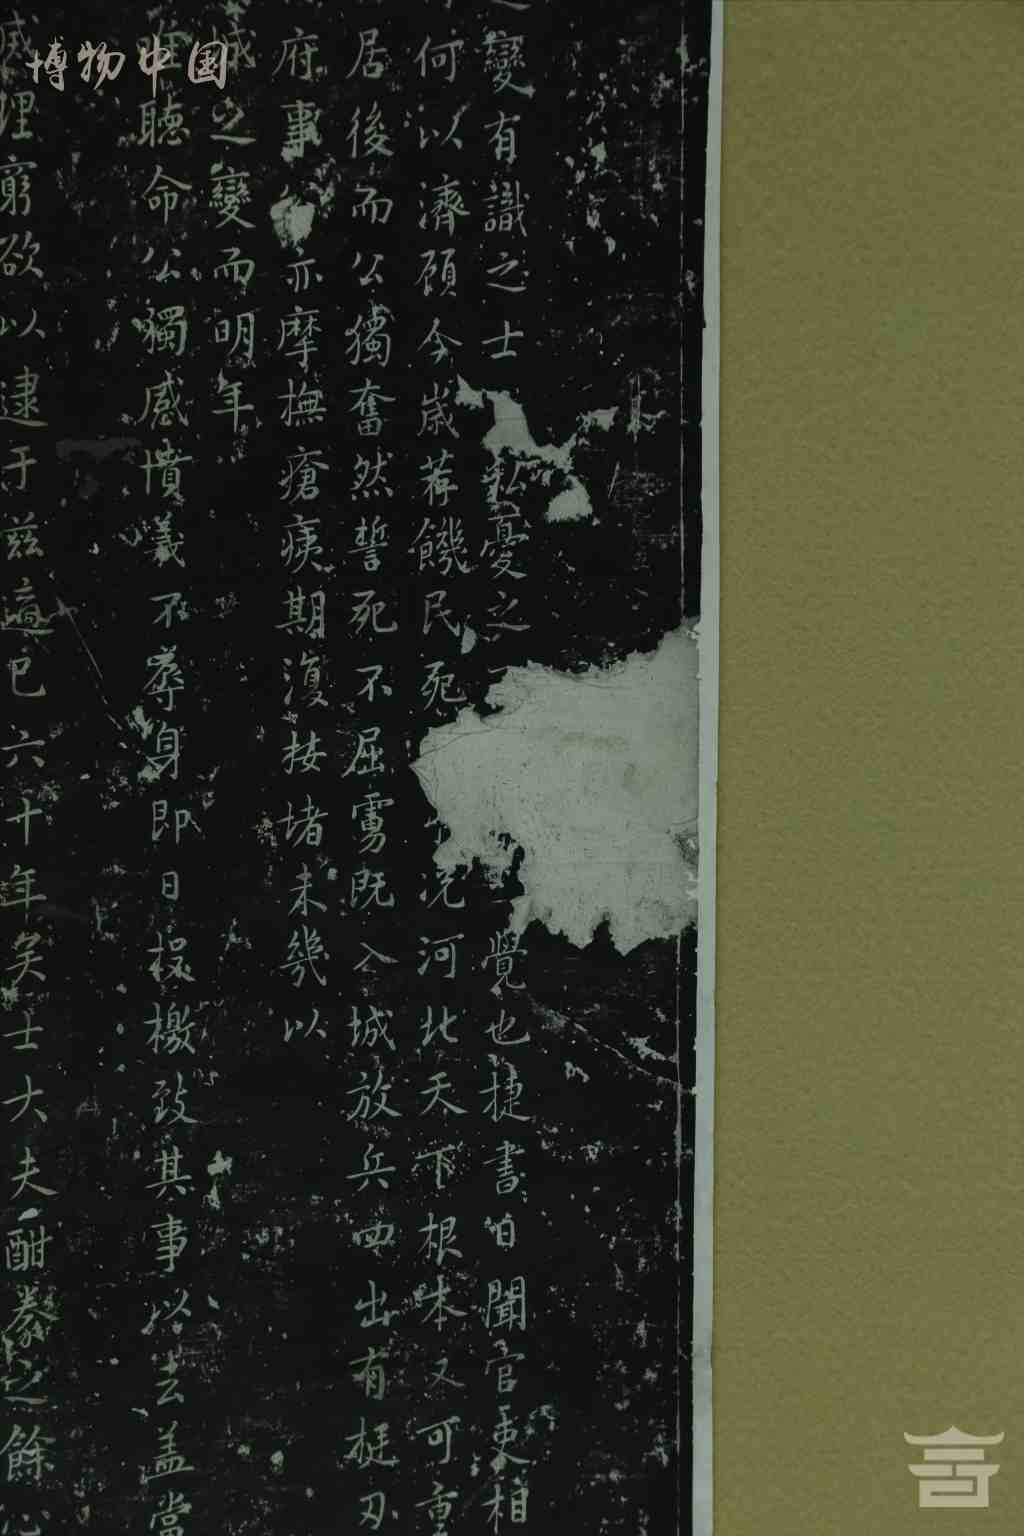 博物中国
變有識之士私憂之覺也捷書日聞官吏相
何以濟顧今歲荐饑民死況河北天下根本又可重
居後而公獨奮然誓死不屈虜既入城放兵四出有挺刃
府事公亦摩撫瘡痍期復按堵未幾以
城之變而明年
聽命公獨感憤義不辱身即日投檄致其事以去盖當
理窮欲以逮于兹適已六十年矣士大夫酣豢之餘心